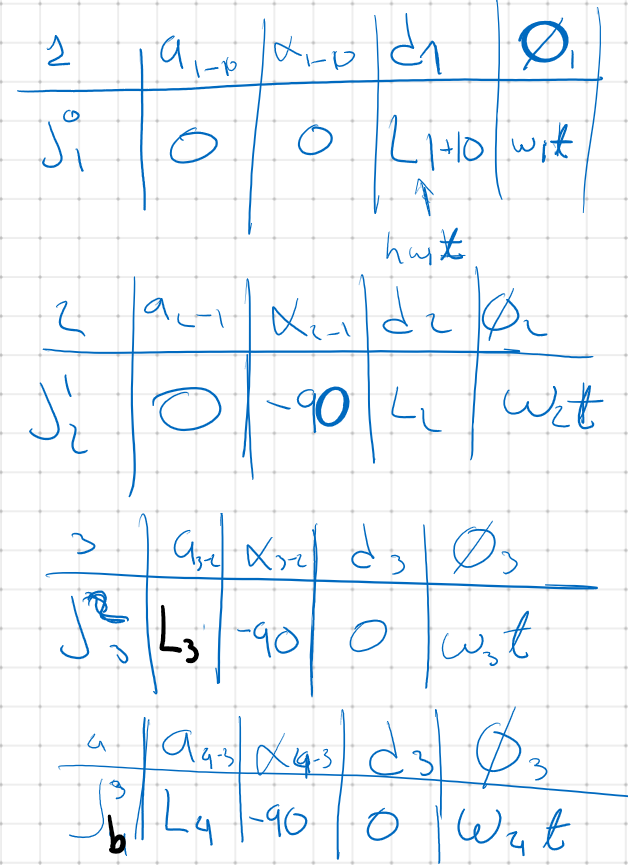 1 a₁₋₀ α₁₋₀ d1 Ø₁
J⁰₁ 0 0 L1+10 w₁t
↑
hw₁t
2 a₂₋₁ α₂₋₁ d₂ Ø₂
J¹₂ 0 -90 L₂ w₂t
3 a₃₋₂ α₃₋₂ d₃ Ø₃
J²₃ L₃ -90 0 w₃t
4 a₄₋₃ α₄₋₃ d₃ Ø₃
J³b L₄ -90 0 w₄t